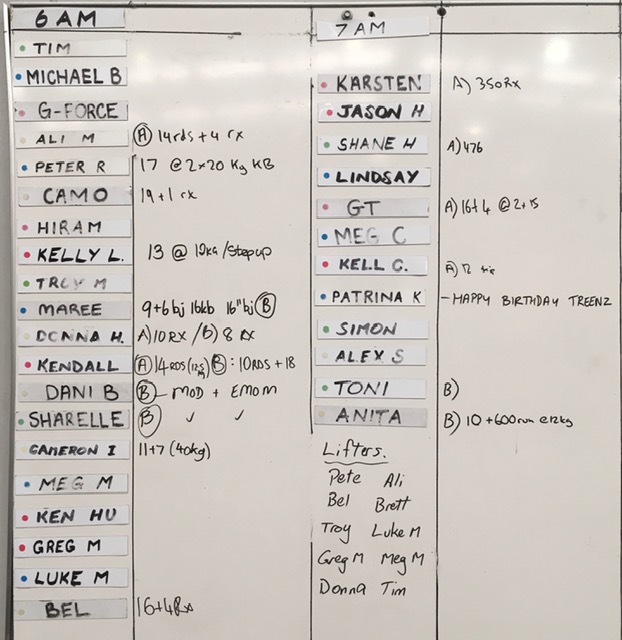 6 AM
TIM
MICHAEL B
G-FORCE
ALI M (A) 14rds + 4 rx
PETER R 17 @ 2x20 Kg KB
CAMO 19+1 rx
HIRAM
KELLY L. 13 @ 12kg /Step up
TROY M
MAREE 9+6 bj 16kb 16"bj (B)
DONNA H. A) 10 RX / B) 8 RX
KENDALL (A) 14 RDS (B): 10 RDS + 18
DANI B (B) - MOD + EMOM
SHARELLE (B) ✓ ✓
CAMERON I 11+7 (40kg)
MEG M
KEN HU
GREG M
LUKE M
BEL 16+4 Rx
7 AM
KARSTEN A) 350 Rx
JASON H
SHANE H A) 476
LINDSAY
GT A) 16+4 @ 2+15
MEG C
KELL C. A) 12
PATRINA K - HAPPY BIRTHDAY TREENZ
SIMON
ALEX S
TONI B)
ANITA B) 10 + 600 run @ 12kg
Lifters.
Pete Ali
Bel Brett
Troy Luke M
Greg M Meg M
Donna Tim